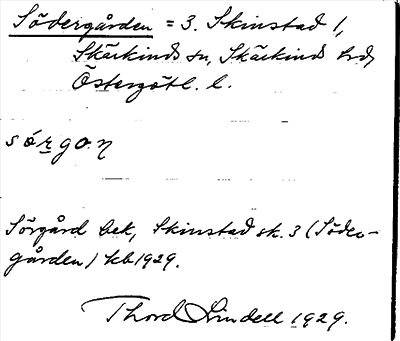 Södergården = 3. Skinstad 1,
Skärkinds sn, Skärkind hrd,
Östergötl. l.
sórgon
Sörgård bek, Skinstad sk. 3 (Söder-
gården) kb 1929.
Thord Lindell 1929.